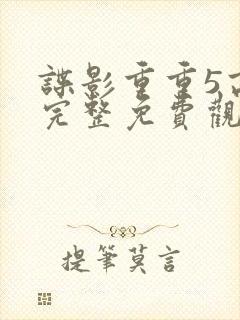 諜影重重5高
完整免費觀
提筆莫言